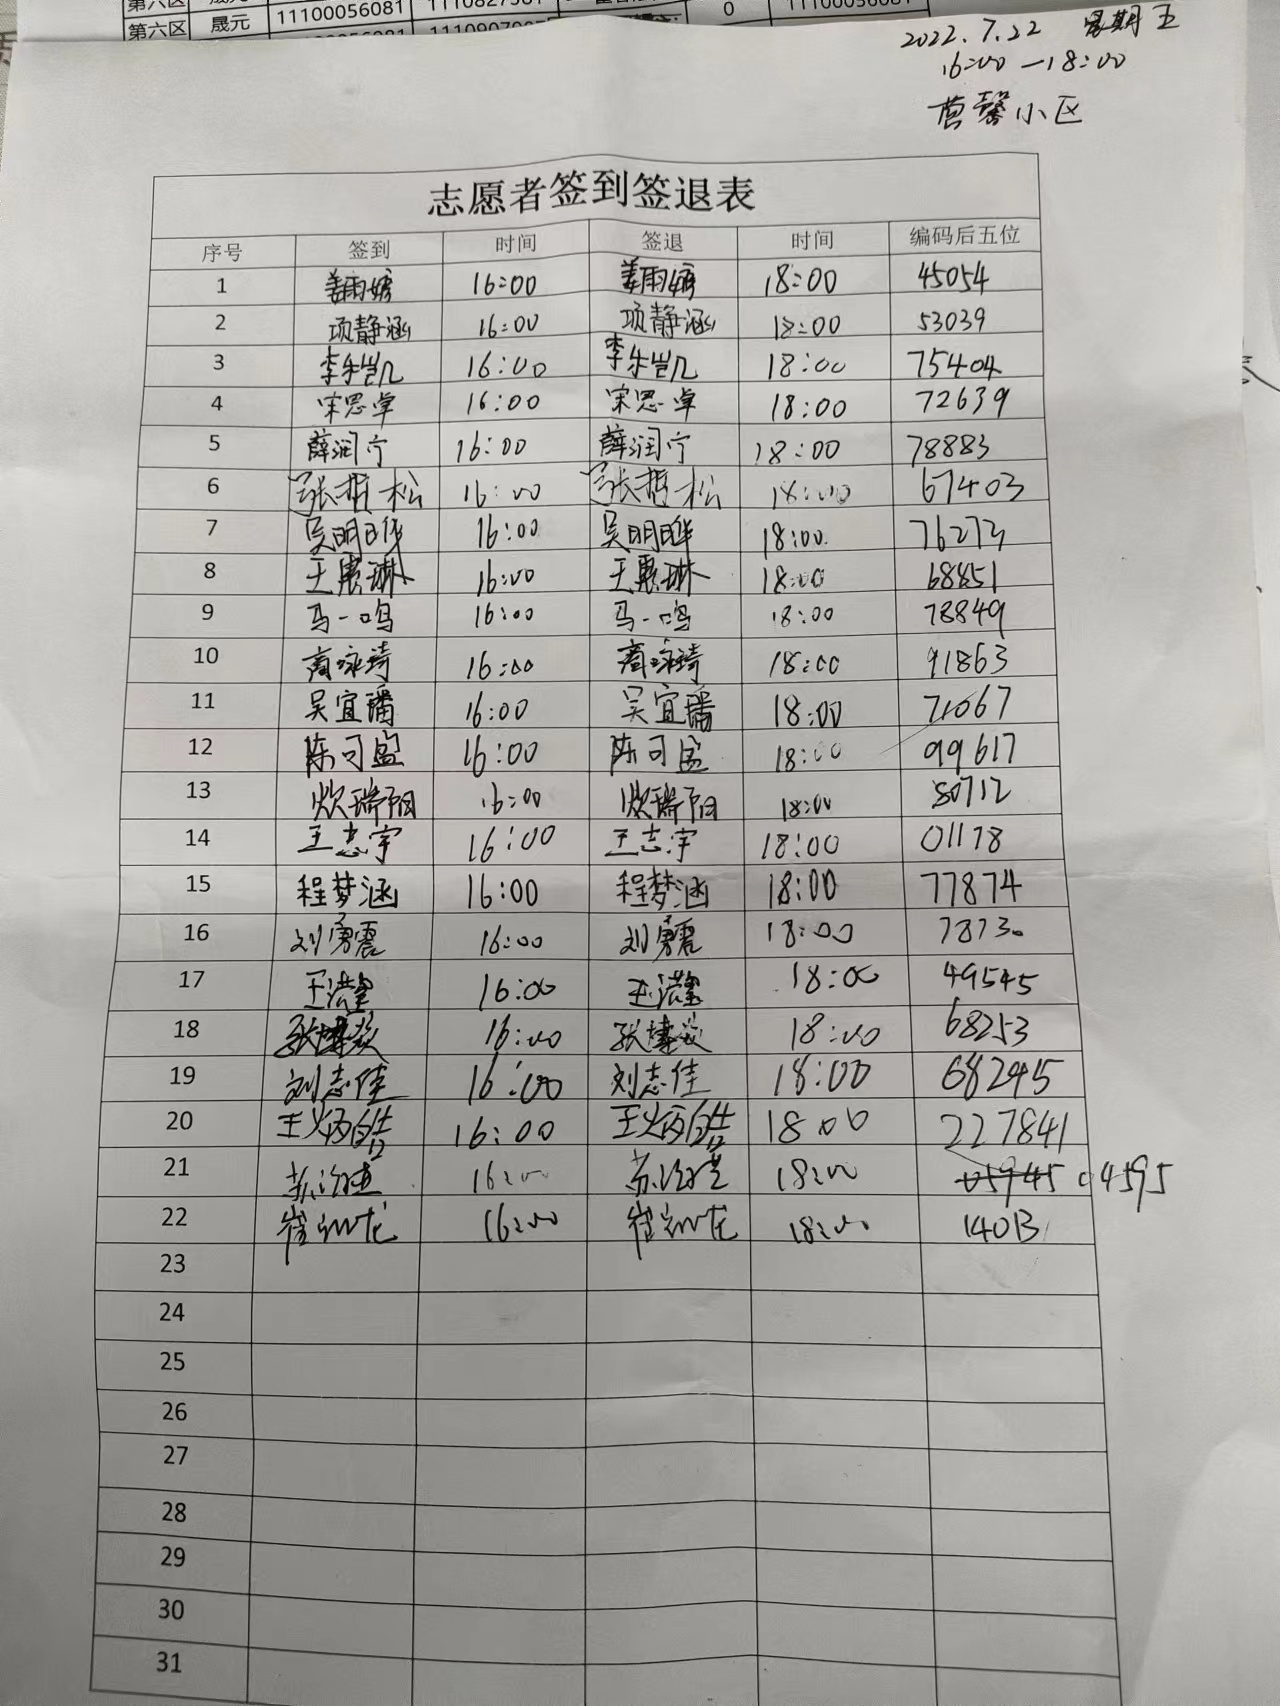 第六区 晟元 11100056081
第六区 晟元 11100056081 0 11100056081
2022.7.22 星期五
16:00—18:00
营馨小区
志愿者签到签退表
序号 签到 时间 签退 时间 编码后五位
1 姜雨嫔 16:00 姜雨嫔 18:00 45054
2 项静涵 16:00 项静涵 18:00 53039
3 李乐凯 16:00 李乐凯 18:00 75404
4 宋思卓 16:00 宋思卓 18:00 72639
5 薛润宁 16:00 薛润宁 18:00 78883
6 张哲松 16:00 张哲松 18:00 67403
7 吴明晔 16:00 吴明晔 18:00 76273
8 王惠琳 16:00 王惠琳 18:00 68851
9 马一鸣 16:00 马一鸣 18:00 78849
10 商咏琦 16:00 商咏琦 18:00 91863
11 吴宜璠 16:00 吴宜璠 18:00 71067
12 陈可盈 16:00 陈可盈 18:00 99617
13 瑞阳 16:00 瑞阳 18:00 80712
14 王志宇 16:00 王志宇 18:00 01178
15 程梦涵 16:00 程梦涵 18:00 77874
16 刘勇震 16:00 刘勇震 18:00 78730
17 王湛 16:00 王湛 18:00 49545
18 张 16:00 张 18:00 68253
19 刘志佳 16:00 刘志佳 18:00 68245
20 王炳皓 16:00 王炳皓 18:00 227841
21 苏 16:00 苏 18:00 05945 04595
22 崔 龙 16:00 崔 龙 18:00 14013
23
24
25
26
27
28
29
30
31